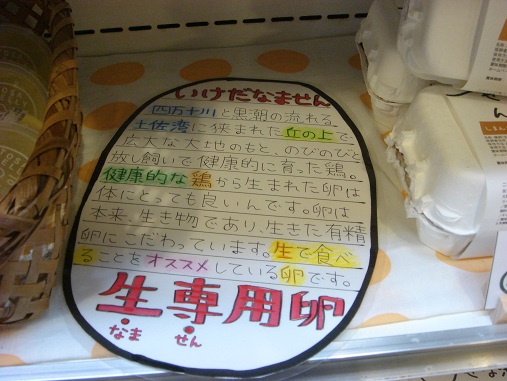 いけだなません
四万十川と黒潮の流れる、
土佐湾に狭まれた丘の上で、
広大な大地のもと、のびのびと
放し飼いで健康的に育った鶏。
健康的な鶏から生まれた卵は
体にとっても良いんです。卵は
本来、生き物であり、生きた有精
卵にこだわっています。生で食べ
ることをオススメしている卵です。
生専用卵
なま せん